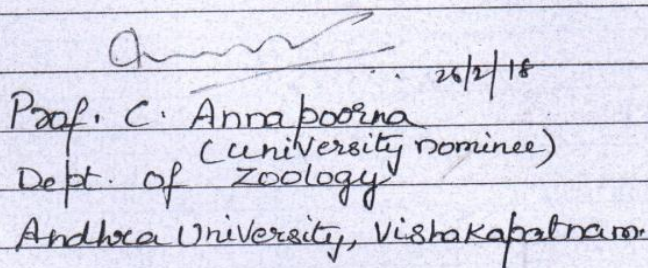 26/2/18
Prof. C. Annapoorna
(University nominee)
Dept. of Zoology
Andhra University, Vishakapatnam.